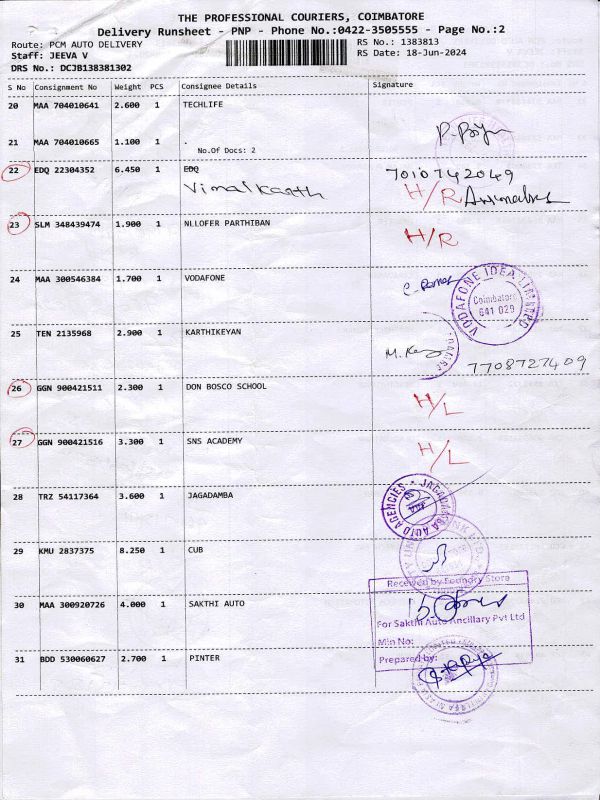 THE PROFESSIONAL COURIERS, COIMBATORE
Delivery Runsheet - PNP - Phone No.:0422-3505555 - Page No.:2
Route: PCM AUTO DELIVERY
Staff: JEEVA V
DRS No.: DCJB138381302
RS No.: 1383813
RS Date: 18-Jun-2024
S No Consignment No Weight PCS Consignee Details Signature
20 MAA 704010641 2.600 1 TECHLIFE
21 MAA 704010665 1.100 1 .
No.Of Docs: 2
22 EDQ 22304352 6.450 1 EDQ 7010742049
Vimal Karth H/R
23 SLM 348439474 1.900 1 NLLOFER PARTHIBAN H/R
24 MAA 300546384 1.700 1 VODAFONE
VODAFONE IDEA LIMITED
Coimbatore
641 029
25 TEN 2135968 2.900 1 KARTHIKEYAN
7708727409
26 GGN 900421511 2.300 1 DON BOSCO SCHOOL H/L
27 GGN 900421516 3.300 1 SNS ACADEMY H/L
28 TRZ 54117364 3.600 1 JAGADAMBA
JAGADAMBA AUTO AGENCIES
29 KMU 2837375 8.250 1 CUB
30 MAA 300920726 4.000 1 SAKTHI AUTO
Received by Foundry Store
For Sakthi Auto Ancillary Pvt Ltd
Min No:
Prepared by:
31 BDD 530060627 2.700 1 PINTER